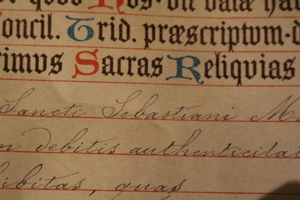 Nos. dit
Concil. Trid. præscriptum.
rimus Sacras Reliquias
Sancti Sebastiani M.
debitis authenticita
ibitas, quas